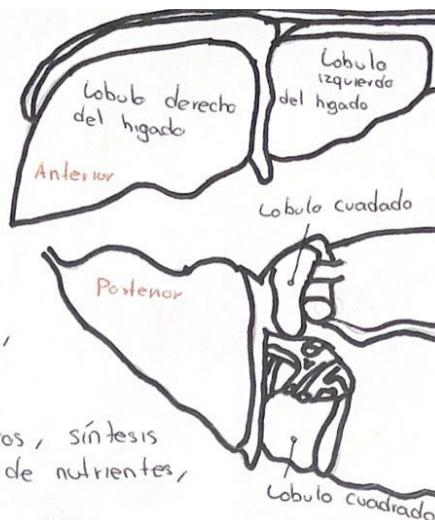 Lobulo derecho
del higado
Lobulo
izquierdo
del higado
Anterior
Lobulo cuadado
Posterior
,
os, síntesis
de nutrientes,
Lobulo cuadrado